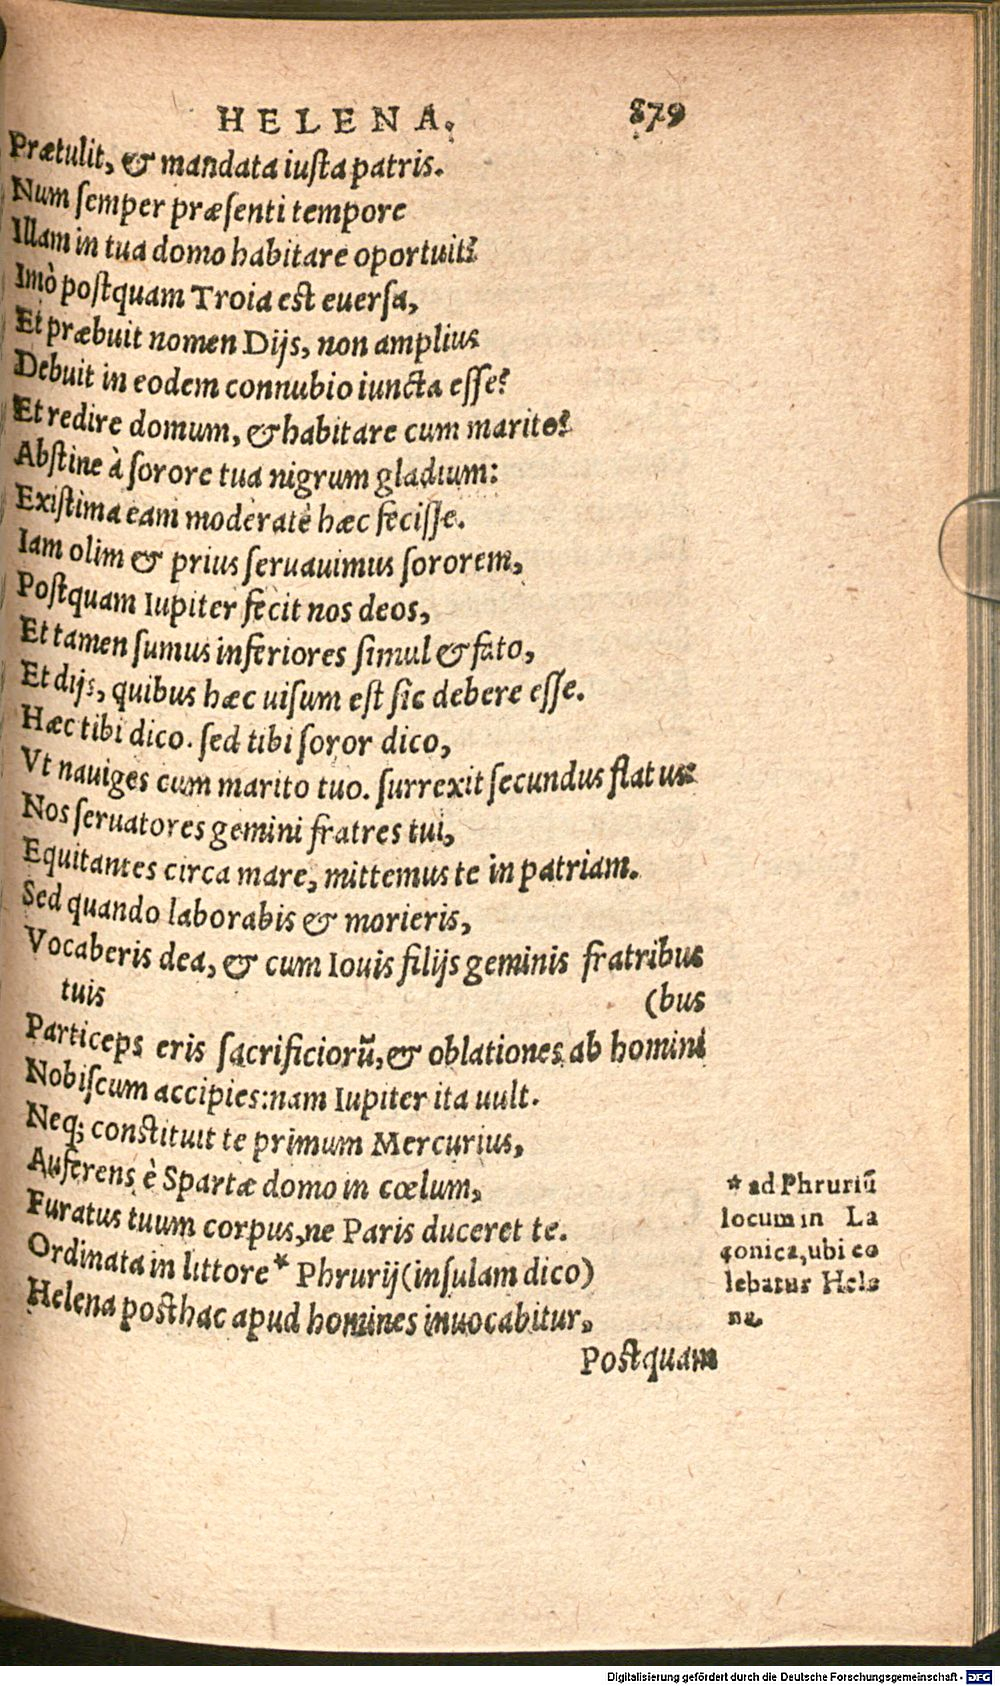 HELENA. 879
Prætulit, & mandata iusta patris.
Num semper præsenti tempore
Illam in tua domo habitare oportuit?
Imò postquam Troia est euersa,
Et præbuit nomen Dijs, non amplius
Debuit in eodem connubio iuncta esse?
Et redire domum, & habitare cum marito?
Abstine à sorore tua nigrum gladium:
Existima eam moderatè hæc fecisse.
Iam olim & prius seruauimus sororem,
Postquam Iupiter fecit nos deos,
Et tamen sumus inferiores simul & fato,
Et dijs, quibus hæc uisum est sic debere esse.
Hæc tibi dico. sed tibi soror dico,
Vt nauiges cum marito tuo. surrexit secundus flatus:
Nos seruatores gemini fratres tui,
Equitantes circa mare, mittemus te in patriam.
Sed quando laborabis & morieris,
Vocaberis dea, & cum Iouis filijs geminis fratribus
tuis (bus
Particeps eris sacrificiorū, & oblationes ab homini
Nobiscum accipies: nam Iupiter ita uult.
Neq; constituit te primum Mercurius,
Auferens è Spartæ domo in cœlum,
Furatus tuum corpus, ne Paris duceret te.
Ordinata in littore * Phrurij (insulam dico)
Helena posthac apud homines inuocabitur,
Postquam
* ad Phruriū
locum in La
conica, ubi co
lebatur Hele
na.
Digitalisierung gefördert durch die Deutsche Forschungsgemeinschaft - DFG